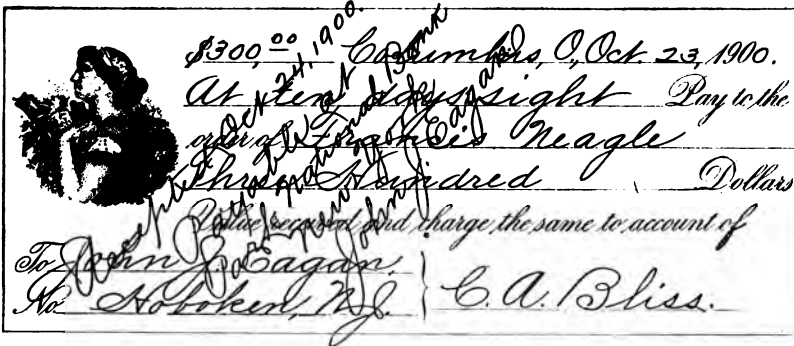 $300,00 Columbus, O, Oct. 23, 1900.
At ten days sight Pay to the
order of Francis Neagle
Three Hundred Dollars
Value received and charge the same to account of
To John J. Eagan.
No Hoboken, N.J. C. A. Bliss.
Accepted Oct 24, 1900.
Payable at
Park National Bank
New York
John J. Eagan